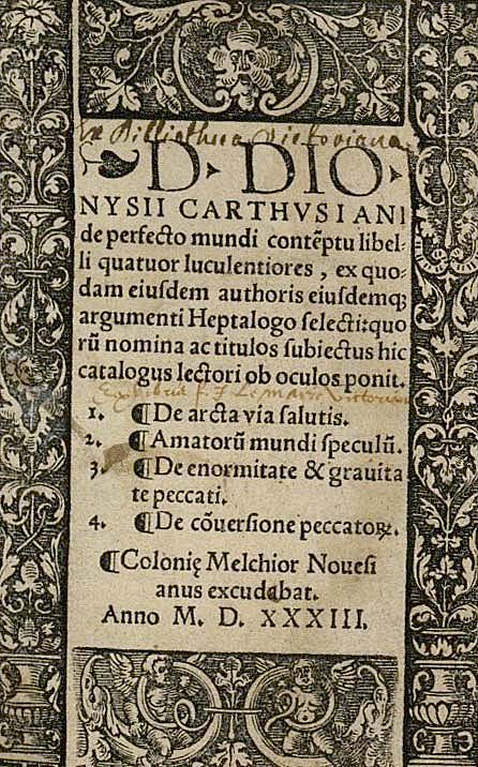 Ex Bibliotheca Victoriana
D. DIO
NYSII CARTHVSIANI
de perfecto mundi contẽptu libel-
li quatuor luculentiores, ex quo-
dam eiuſdem authoris eiuſdemq;
argumenti Heptalogo ſelecti: quo
rũ nomina ac titulos ſubiectus hic
catalogus lectori ob oculos ponit.
1. ¶ De arcta via ſalutis.
2. ¶ Amatorũ mundi ſpeculũ.
3. ¶ De enormitate & grauita
te peccati.
4. ¶ De cõuerſione peccatoꝝ.
¶ Colonię Melchior Noueſi
anus excudebat.
Anno M. D. XXXIII.